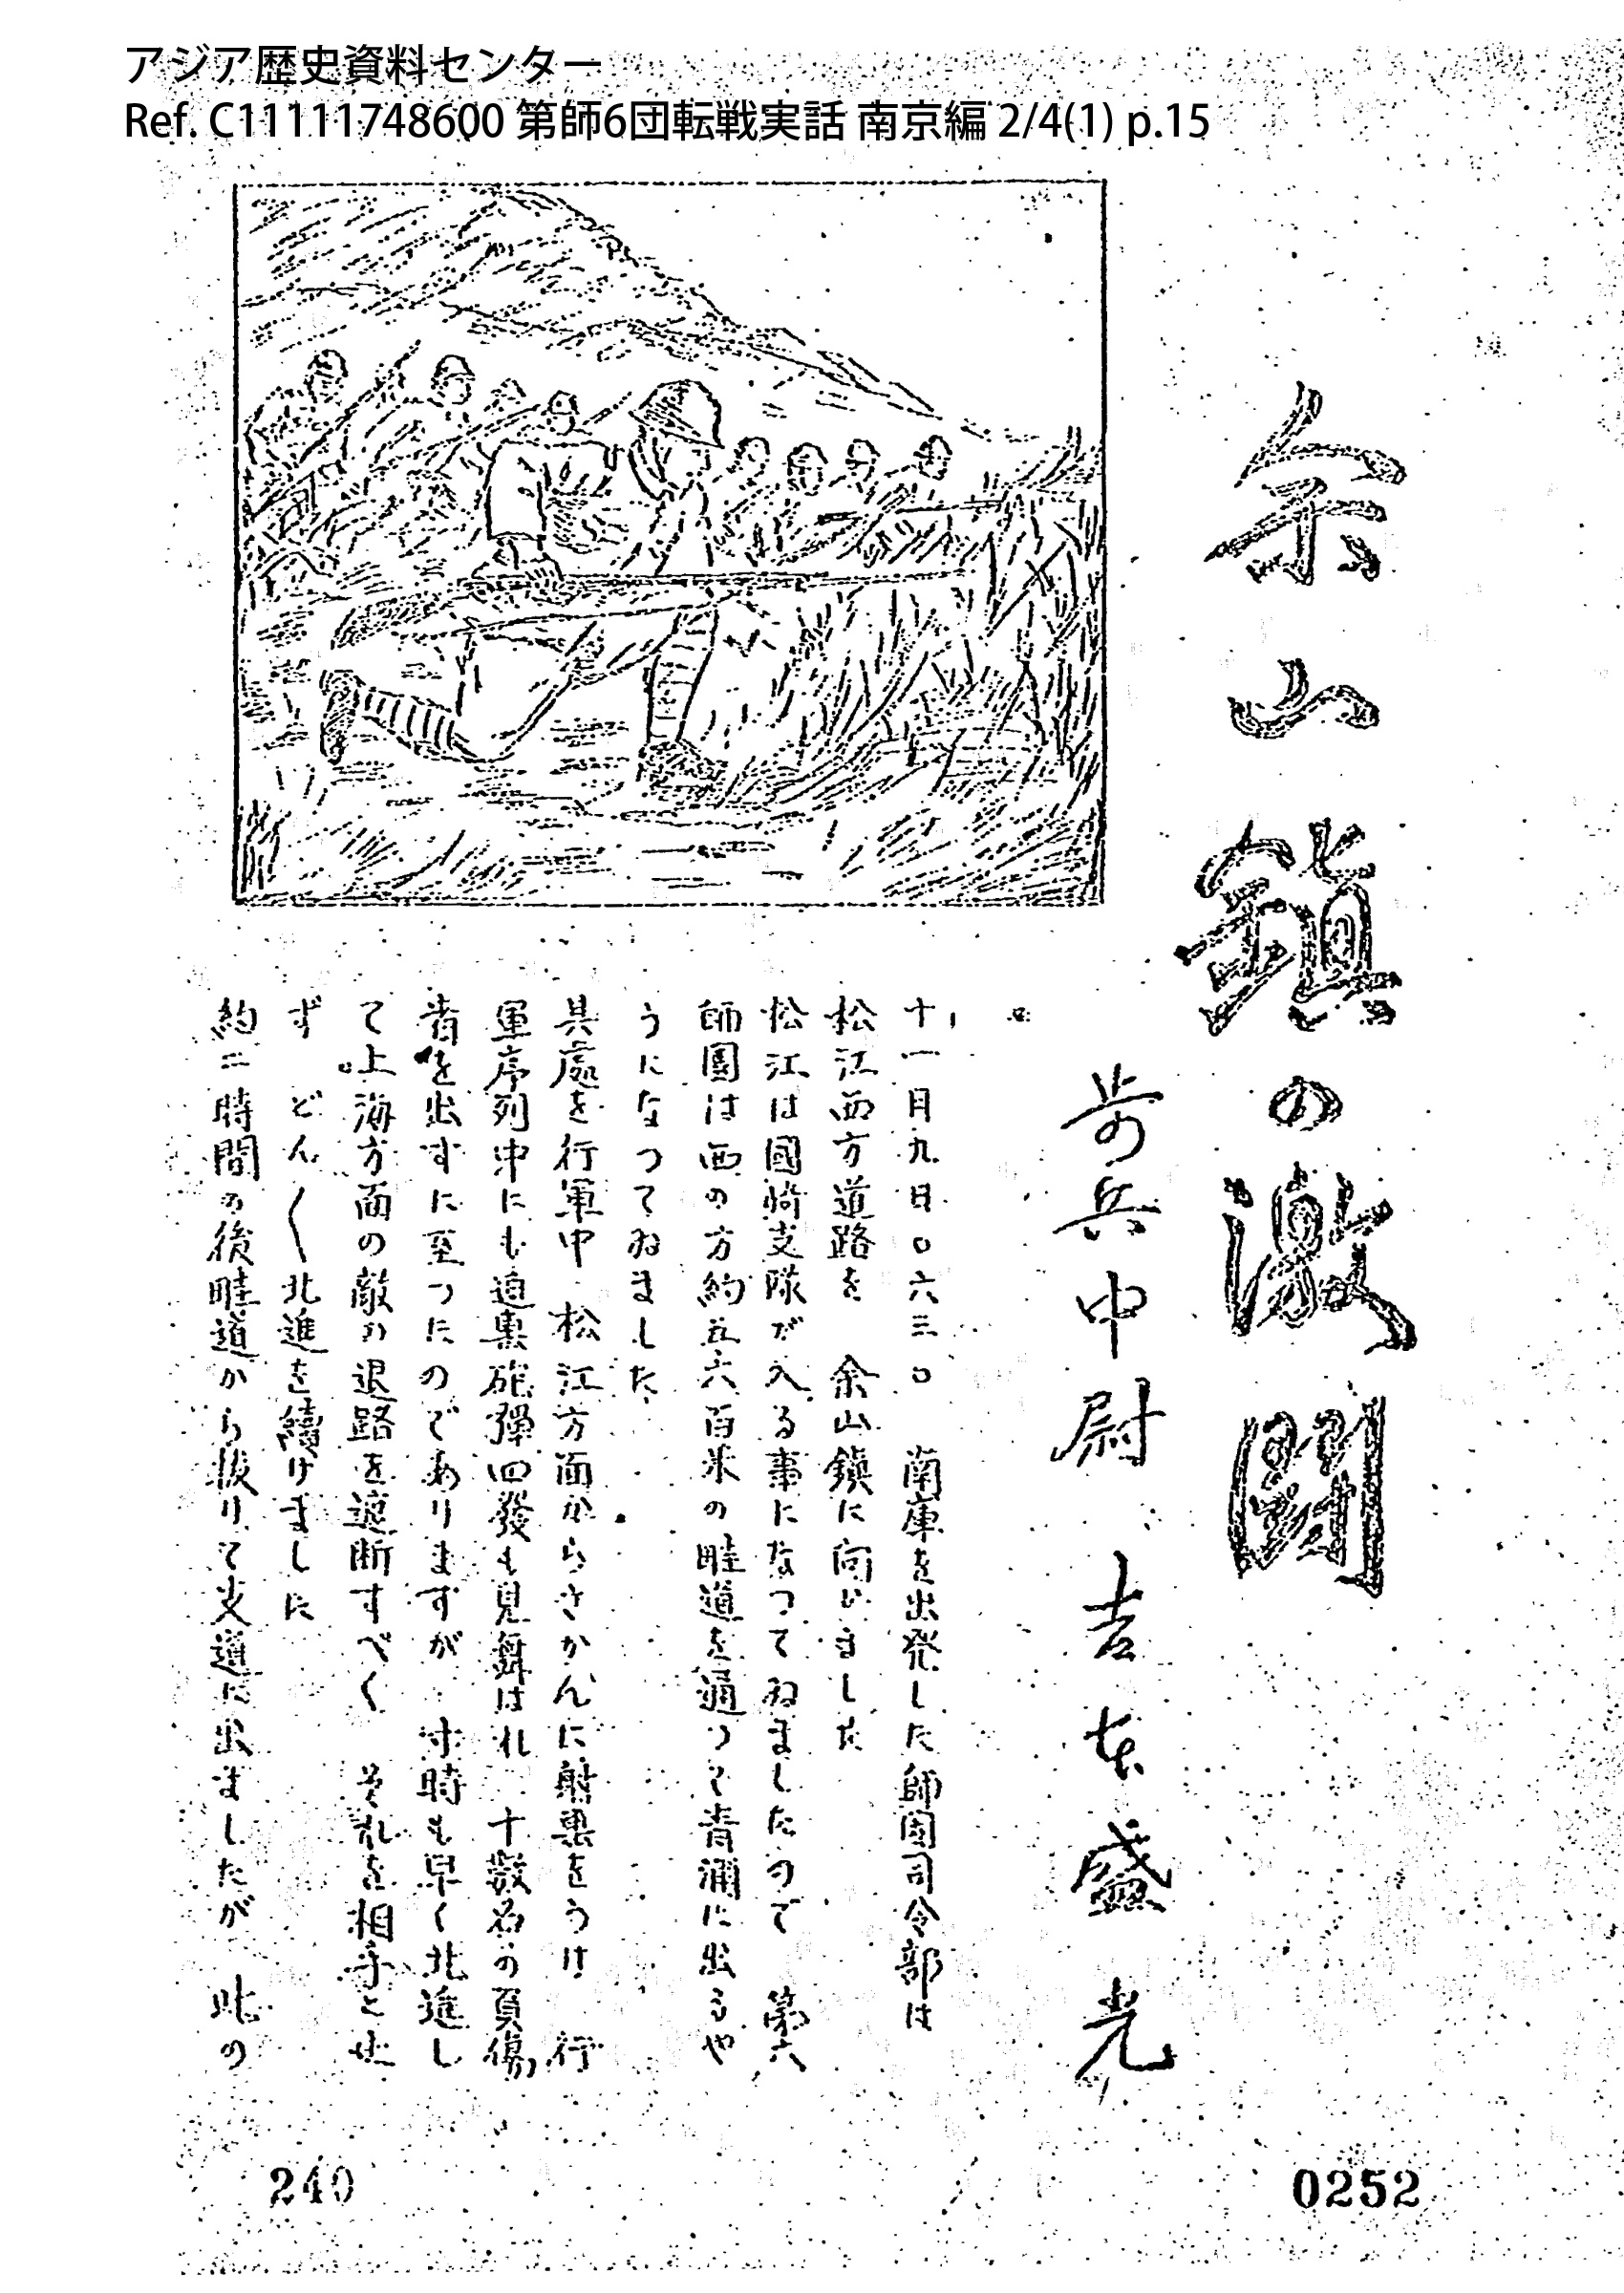 アジア歴史資料センター
Ref. C11111748600 第師6団転戦実話 南京編 2/4(1) p.15
余山鎮の激闘
歩兵中尉 吉本盛光
十一月九日〇六三〇 南庫を出発した師団司令部は
松江西方道路を 余山鎮に向ひました
松江は國崎支隊が入る事になつてゐましたので 第六
師團は西の方約五六百米の畦道を通つて青浦に出るや
うになつてゐました
其處を行軍中 松江方面からさかんに射撃をうけ 行
軍序列中にも迫撃砲弾四發も見舞はれ 十数名の負傷
者を出すに至つたのでありますが 寸時も早く北進し
て上海方面の敵の退路を遮断すべく それを相手とせ
ず どん〱北進を續けました
約二時間の後畦道から抜けて支道に出ましたが 此の
240
0252